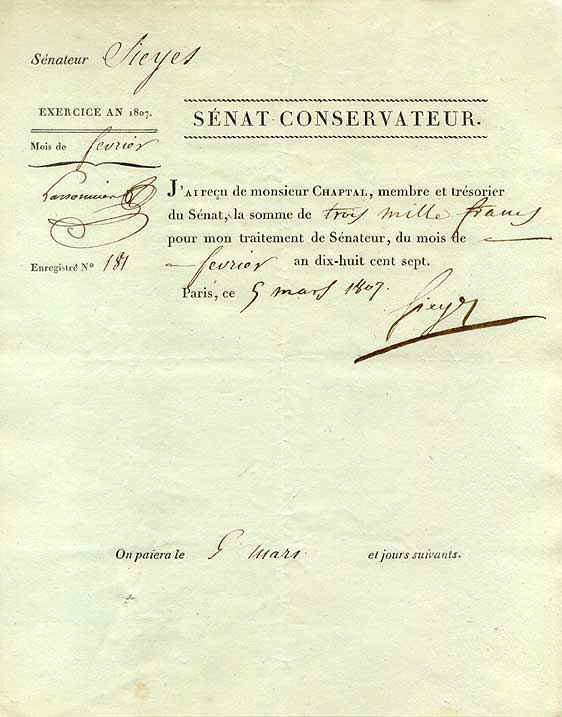 Sénateur Sieyes
EXERCICE AN 1807.
SÉNAT CONSERVATEUR.
Mois de fevrier
J'AI reçu de monsieur CHAPTAL, membre et trésorier
du Sénat, la somme de trois mille francs
pour mon traitement de Sénateur, du mois de
fevrier an dix-huit cent sept.
Enregistré Nº 181
Paris, ce 5 mars 1807.
Sieyes
On paiera le 5 mars et jours suivants.